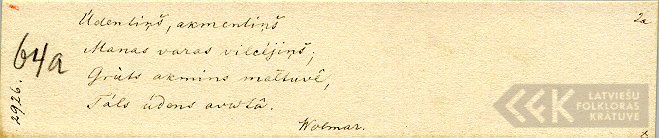 Ūdentiņš, akmentiņš
2a
64a
Manas varas vilcējiņš;
Grūts akmins maltuvē,
Tāls ūdens avotā.
2926.
Wolmar.
LATVIEŠU
FOLKLORAS
KRĀTUVE